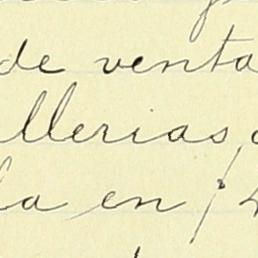 de venta
llerias,
la en